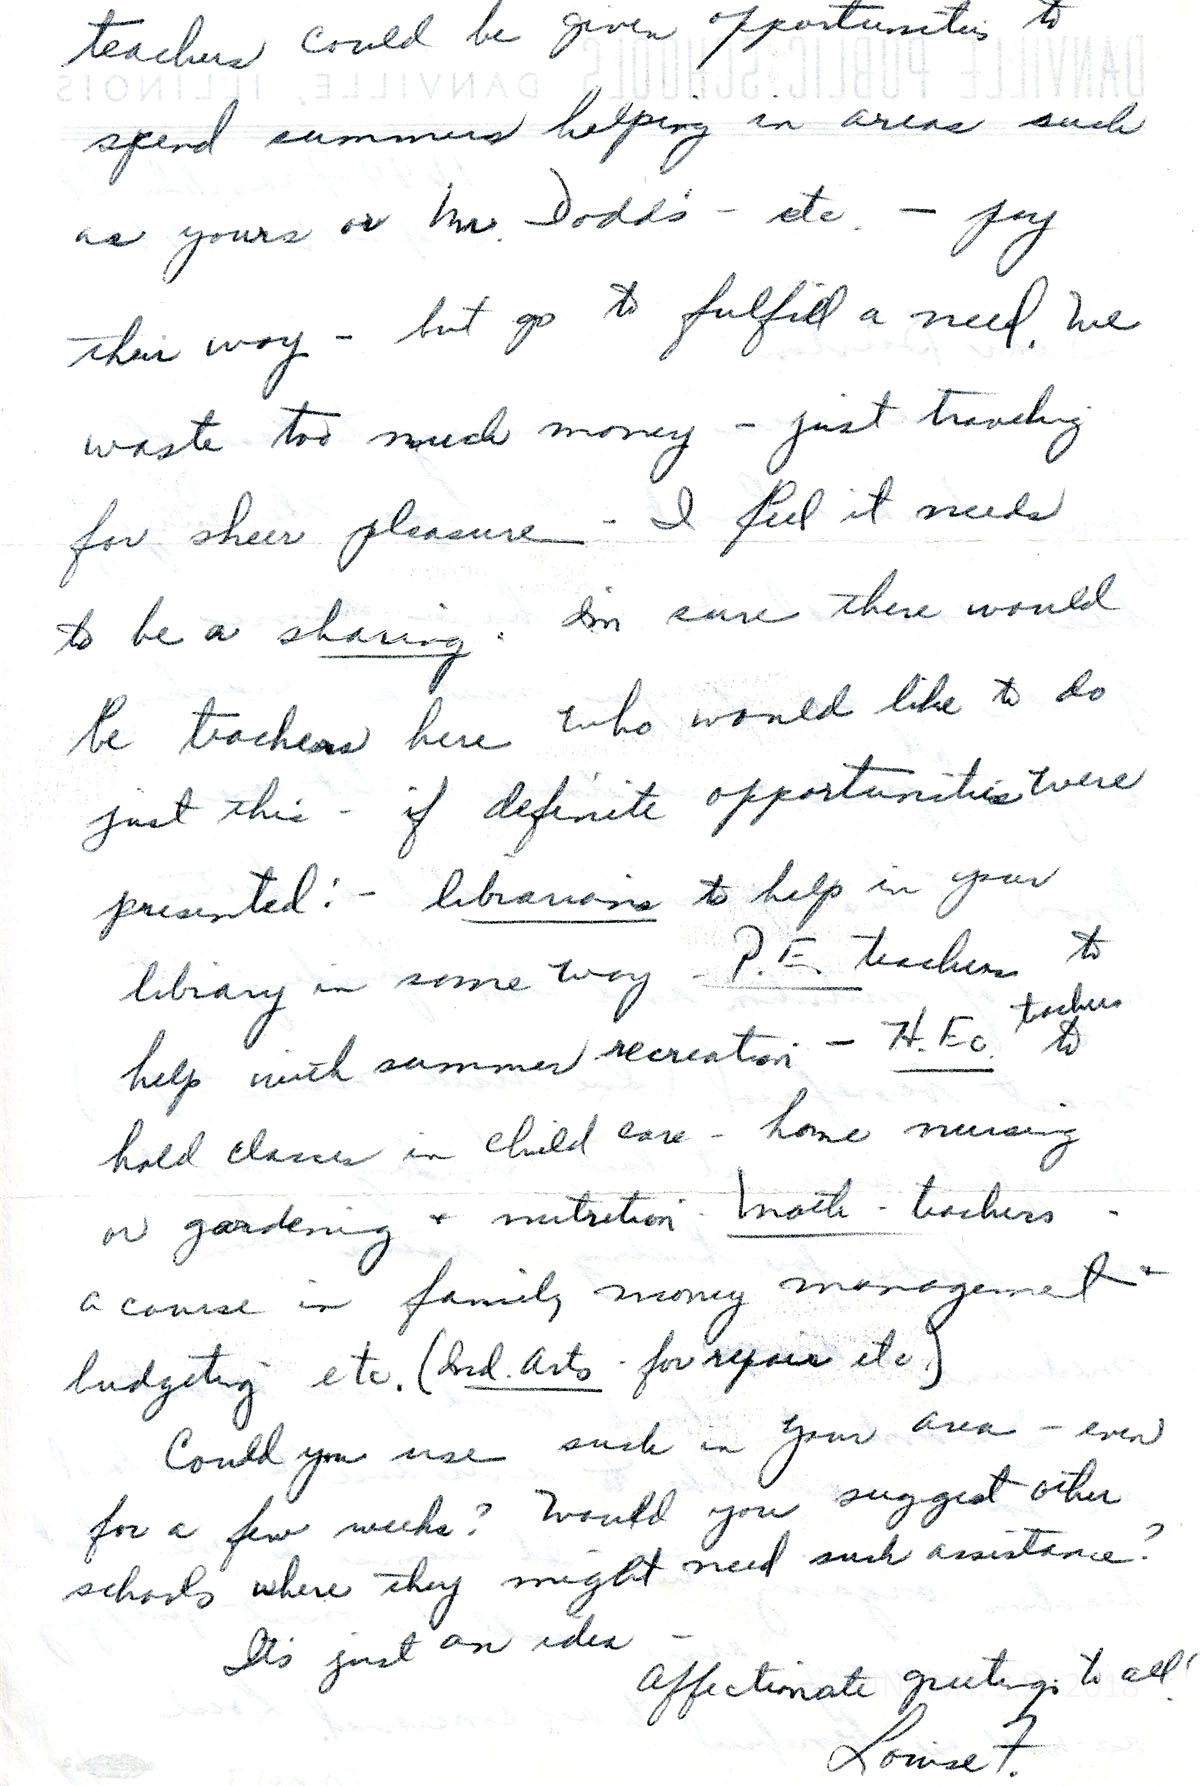 teachers could be given opportunities to
DANVILLE PUBLIC SCHOOLS DANVILLE, ILLINOIS
spend summers helping in areas such
as yours or Mr. Dodds - etc. - pay
their way - but go to fulfill a need. We
waste too much money - just traveling
for sheer pleasure - I feel it needs
to be a sharing. I'm sure there would
be teachers here who would like to do
just this - if definite opportunities were
presented! - librarians to help in your
library in some way - P.E. teachers to
help with summer recreation - H.Ec. teachers to
hold classes in child care - home nursing
or gardening + nutrition - Math - teachers -
a course in family money management +
budgeting etc. (Ind. Arts - for repair etc.)
Could you use such in your area - even
for a few weeks? Would you suggest other
schools where they might need such assistance?
It's just an idea -
Affectionate greetings to all!
Louise F.